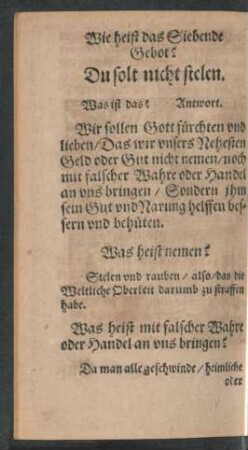 Wie heist das Siebende
Gebot?
Du solt nicht stelen.
Was ist das? Antwort.
Wir sollen Gott fürchten vnd
lieben / Das wir vnsers Nehesten
Geld oder Gut nicht nemen / noch
mit falscher Wahre oder Handel
an vns bringen / Sondern jhm
sein Gut vnd Narung helffen bes-
sern vnd behüten.
Was heist nemen?
Stelen vnd rauben / also / das die
Weltliche Oberkeit darumb zu straffen
habe.
Was heist mit falscher Wahre
oder Handel an vns bringen?
Da man alle geschwinde / heimliche
oder